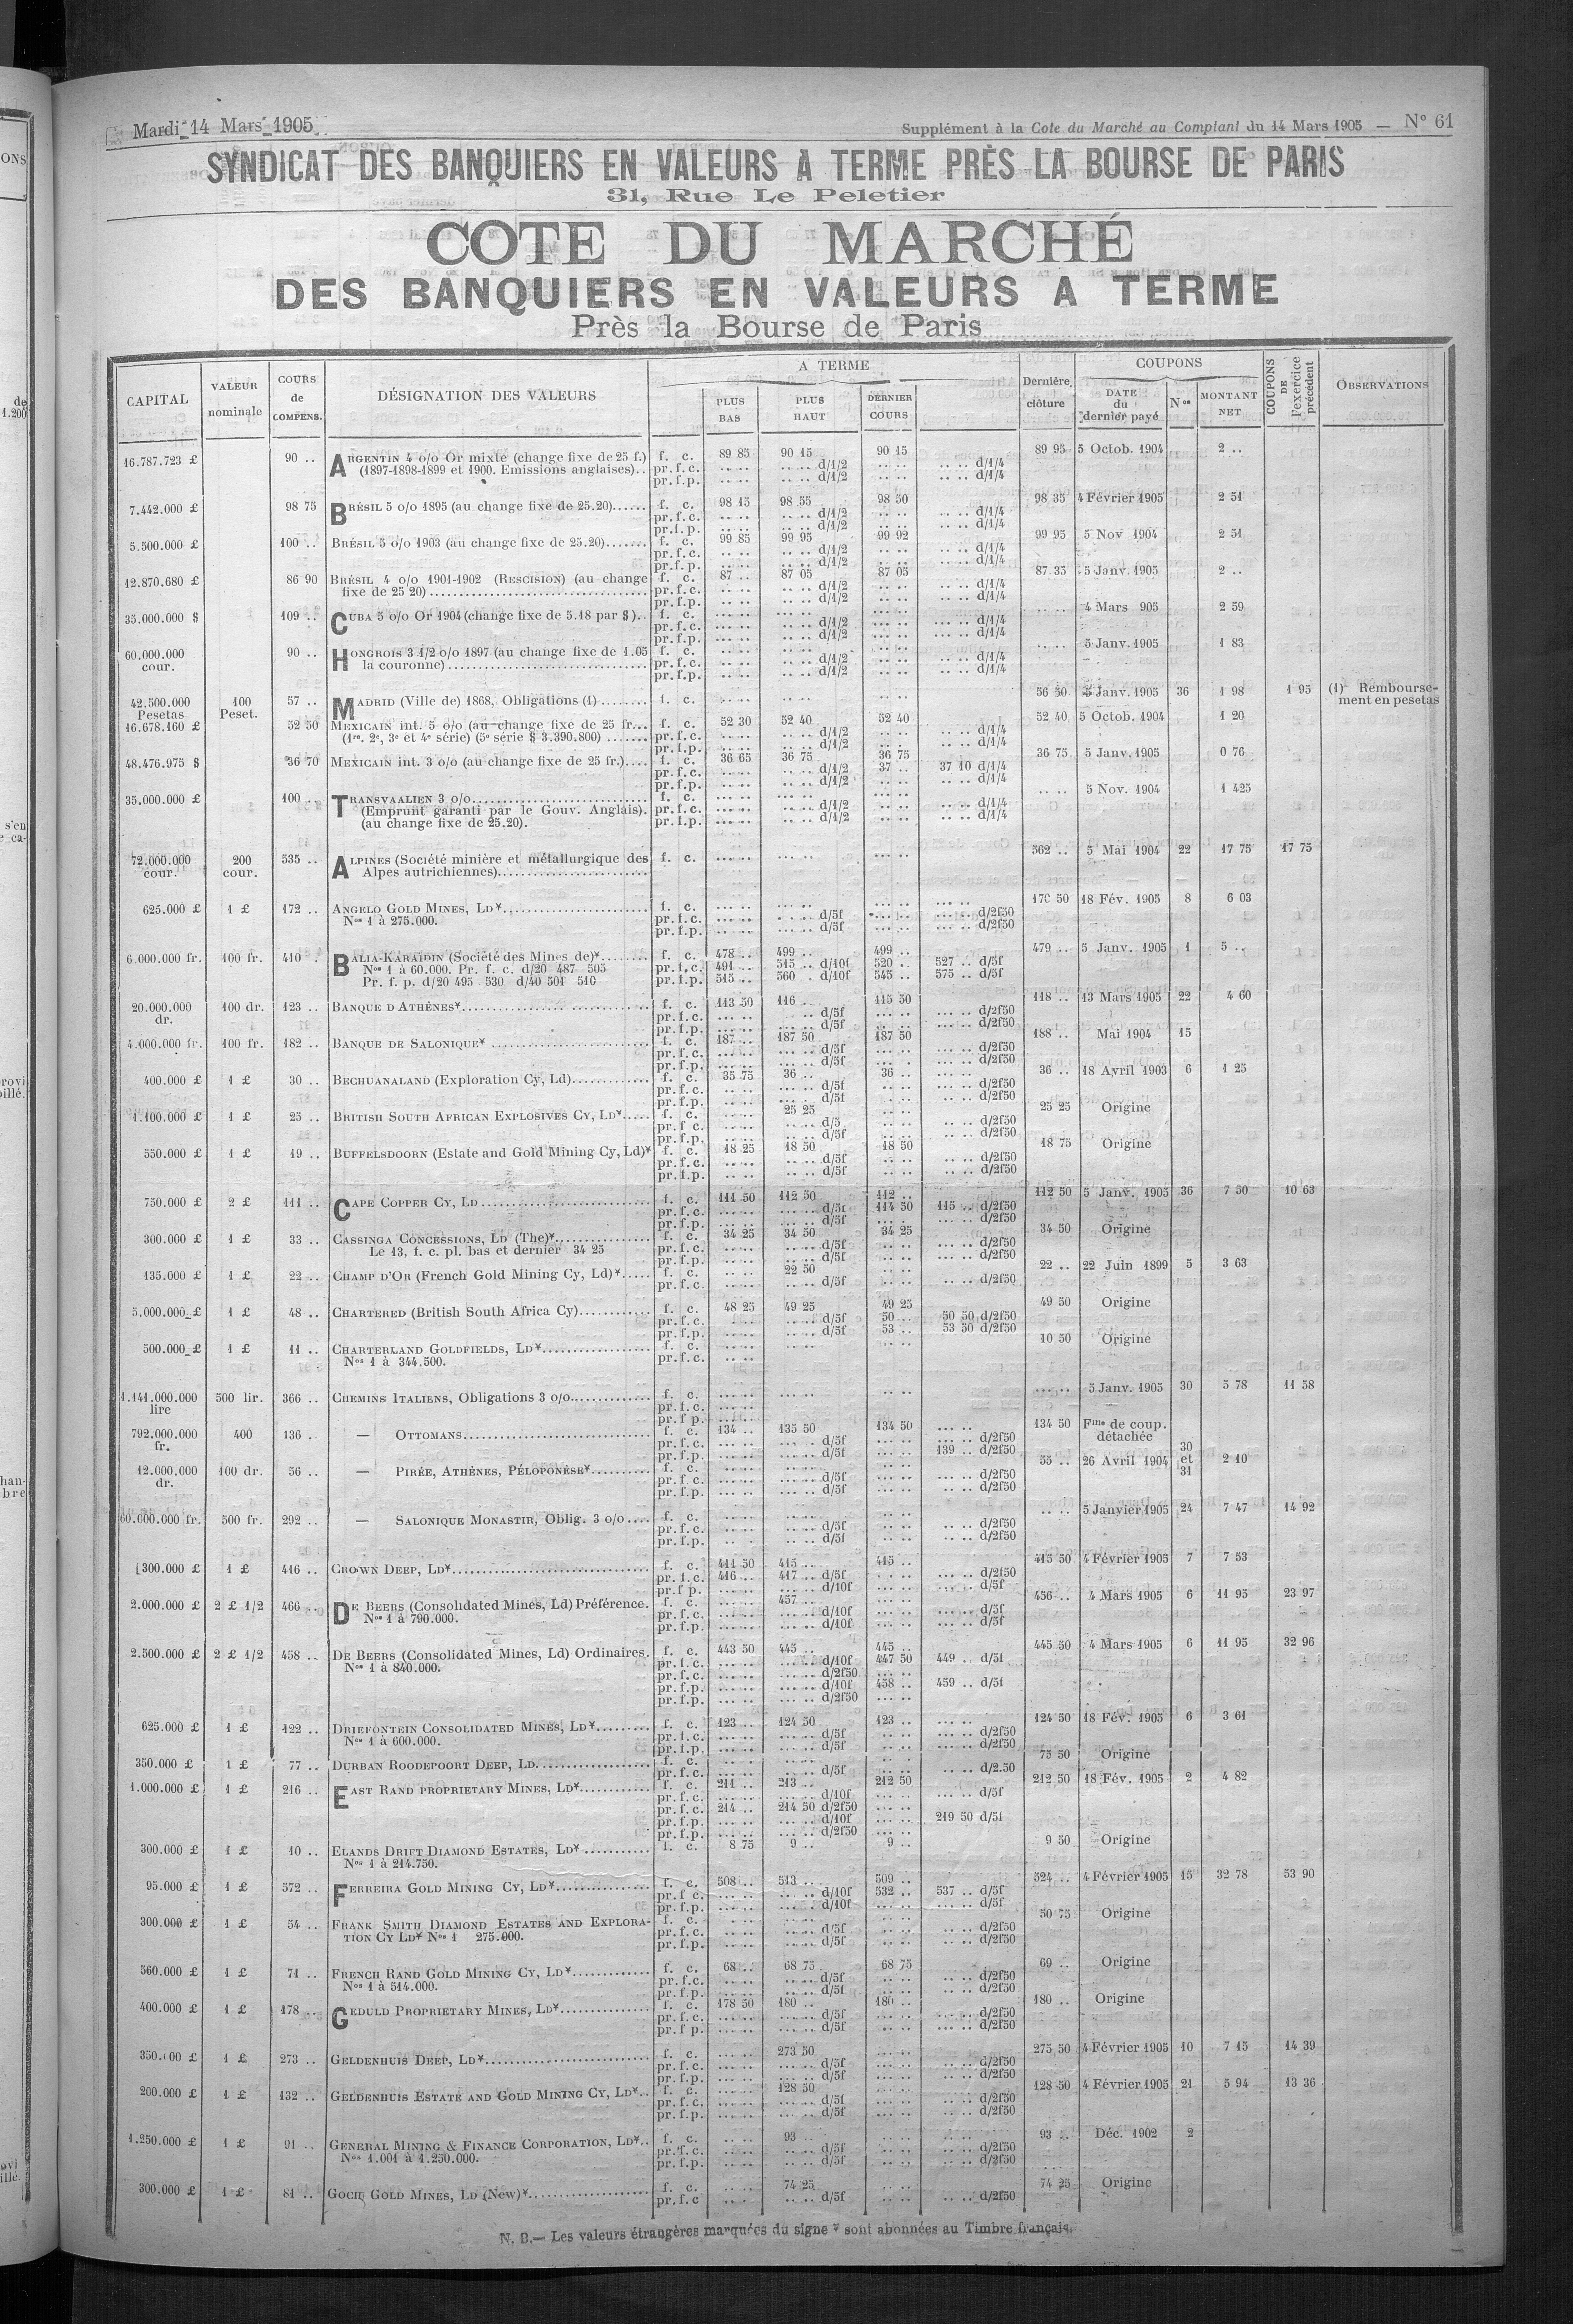 Mardi 14 Mars 1905
Supplément à la Cote du Marché au Comptant du 14 Mars 1905 — N° 61
SYNDICAT DES BANQUIERS EN VALEURS A TERME PRÈS LA BOURSE DE PARIS
31, Rue Le Peletier
COTE DU MARCHÉ
DES BANQUIERS EN VALEURS A TERME
Près la Bourse de Paris
CAPITAL VALEUR nominale COURS de COMPENS. DÉSIGNATION DES VALEURS A TERME PLUS BAS PLUS HAUT DERNIER COURS Dernière clôture COUPONS DATE du dernier payé Nos MONTANT NET COUPONS DE l'exercice précédent OBSERVATIONS
16.787.723 £ 90 .. ARGENTIN 4 o/o Or mixte (change fixe de 25 f.) f. c. 89 85 90 15 90 15 89 95 5 Octob. 1904 2 ..
(1897-1898-1899 et 1900. Emissions anglaises).. pr. f. c. d/1/2 d/1/4
pr. f. p. d/1/2 d/1/4
7.442.000 £ 98 75 BRÉSIL 5 o/o 1895 (au change fixe de 25.20)...... f. c. 98 15 98 55 98 50 98 35 4 Février 1905 2 51
pr. f. c. d/1/2 d/1/4
pr. f. p. d/1/2 d/1/4
5.500.000 £ 100 .. BRÉSIL 5 o/o 1903 (au change fixe de 25.20)....... f. c. 99 85 99 95 99 92 99 95 5 Nov 1904 2 51
pr. f. c. d/1/2 d/1/4
pr. f. p. d/1/2 d/1/4
12.870.680 £ 86 90 BRÉSIL 4 o/o 1901-1902 (RESCISION) (au change f. c. 87 .. 87 05 87 05 87 35 5 Janv. 1905 2 ..
fixe de 25 20) pr. f. c. d/1/2 d/1/4
pr. f. p. d/1/2 d/1/4
35.000.000 $ 109 .. CUBA 5 o/o Or 1904 (change fixe de 5.18 par $).. f. c. 4 Mars 905 2 59
pr. f. c. d/1/2 d/1/4
pr. f. p. d/1/2 d/1/4
60.000.000 cour. 90 .. HONGROIS 3 1/2 o/o 1897 (au change fixe de 1.05 f. c. 5 Janv. 1905 1 83
la couronne) pr. f. c. d/1/2 d/1/4
pr. f. p. d/1/2 d/1/4
42.500.000 Pesetas 100 Peset. 57 .. MADRID (Ville de) 1868, Obligations (1) f. c. 56 50 5 Janv. 1905 36 1 98 1 95 (1) Rembourse-
ment en pesetas
16.678.160 £ 52 50 MEXICAIN int. 5 o/o (au change fixe de 25 fr... f. c. 52 30 52 40 52 40 52 40 5 Octob. 1904 1 20
(1re, 2e, 3e et 4e série) (5e série $ 3.390.800) pr. f. c. d/1/2 d/1/4
pr. f. p. d/1/2 d/1/4
48.476.975 $ 36 70 MEXICAIN int. 3 o/o (au change fixe de 25 fr.).... f. c. 36 65 36 75 36 75 36 75 5 Janv. 1905 0 76
pr. f. c. d/1/2 37 .. 37 10 d/1/4
pr. f. p. d/1/2 d/1/4
35.000.000 £ 100 .. TRANSVAALIEN 3 o/o f. c. 5 Nov. 1904 1 425
(Emprunt garanti par le Gouv. Anglais). pr. f. c. d/1/2 d/1/4
(au change fixe de 25.20). pr. f. p. d/1/2 d/1/4
72.000.000 cour. 200 cour. 535 .. ALPINES (Société minière et métallurgique des f. c. 562 .. 5 Mai 1904 22 17 75 17 75
Alpes autrichiennes)
625.000 £ 1 £ 172 .. ANGELO GOLD MINES, LD¥ f. c. 170 50 18 Fév. 1905 8 6 03
Nos 1 à 275.000. pr. f. c. d/5f d/2f50
pr. f. p. d/5f d/2f50
6.000.000 fr. 100 fr. 410 . BALIA-KARAIDIN (Société des Mines de)¥ f. c. 478 .. 499 .. 499 .. 479 .. 5 Janv. 1905 1 5 ..
Nos 1 à 60.000. Pr. f. c. d/20 487 505 pr. f. c. 491 .. 515 .. d/10f 520 .. 527 .. d/5f
Pr. f. p. d/20 495 530 d/40 501 510 pr. f. p. 515 .. 560 . d/10f 545 .. 575 .. d/5f
20.000.000 dr. 100 dr. 123 .. BANQUE D'ATHÈNES¥ f. c. 113 50 116 . 115 50 118 .. 13 Mars 1905 22 4 60
pr. f. c. d/5f d/2f50
pr. f. p. d/5f d/2f50
4.000.000 fr. 100 fr. 182 .. BANQUE DE SALONIQUE¥ f. c. 187 .. 187 50 187 50 188 .. Mai 1904 15
pr. f. c. d/5f d/2f50
pr. f. p. d/5f d/2f50
400.000 £ 1 £ 30 .. BECHUANALAND (Exploration Cy, Ld) f. c. 35 75 36 .. 36 .. 36 .. 18 Avril 1903 6 1 25
pr. f. c. d/5f d/2f50
pr. f. p. d/5f d/2f50
1.100.000 £ 1 £ 25 .. BRITISH SOUTH AFRICAN EXPLOSIVES CY, LD¥ f. c. 25 25 25 25 Origine
pr. f. c. d/5 d/2f50
pr. f. p. d/5f d/2f50
550.000 £ 1 £ 19 .. BUFFELSDOORN (Estate and Gold Mining Cy, Ld)¥ f. c. 18 25 18 50 18 50 18 75 Origine
pr. f. c. d/5f d/2f50
pr. f. p. d/5f d/2f50
750.000 £ 2 £ 111 .. CAPE COPPER CY, LD f. c. 111 50 112 50 112 .. 112 50 5 Janv. 1905 36 7 50 10 63
pr. f. c. d/5f 114 50 115 .. d/2f50
pr. f. p. d/5f d/2f50
300.000 £ 1 £ 33 .. CASSINGA CONCESSIONS, LD (The)¥ f. c. 34 25 34 50 34 25 34 50 Origine
Le 13, f. c. pl. bas et dernier 34 25 pr. f. c. d/5f d/2f50
pr. f. p. d/5f d/2f50
135.000 £ 1 £ 22 .. CHAMP D'OR (French Gold Mining Cy, Ld)¥ f. c. 22 50 22 .. 22 Juin 1899 5 3 63
pr. f. c. d/5f d/2f50
5.000.000 £ 1 £ 48 .. CHARTERED (British South Africa Cy) f. c. 48 25 49 25 49 25 49 50 Origine
pr. f. c. d/5f 50 .. 50 50 d/2f50
pr. f. p. d/5f 53 .. 53 50 d/2f50
500.000 £ 1 £ 11 .. CHARTERLAND GOLDFIELDS, LD¥ f. c. 10 50 Origine
Nos 1 à 344.500. pr. f. c.
1.141.000.000 lire 500 lir. 366 .. CHEMINS ITALIENS, Obligations 3 o/o f. c. 5 Janv. 1905 30 5 78 11 58
pr. f. c.
pr. f. p.
792.000.000 fr. 400 136 .. — OTTOMANS f. c. 134 .. 135 50 134 50 134 50 Fine de coup. détachée
pr. f. c. d/5f d/2f50
pr. f. p. d/5f 139 .. d/2f50
12.000.000 dr. 100 dr. 56 .. — PIRÉE, ATHÈNES, PÉLOPONÈSE¥ f. c. 55 .. 26 Avril 1904 30 et 31 2 10
pr. f. c. d/5f d/2f50
pr. f. p. d/5f d/2f50
60.000.000 fr. 500 fr. 292 .. — SALONIQUE MONASTIR, Oblig. 3 o/o f. c. 5 Janvier 1905 24 7 47 14 92
pr. f. c. d/5f d/2f50
pr. f. p. d/5f d/2f50
300.000 £ 1 £ 416 .. CROWN DEEP, LD¥ f. c. 411 50 415 .. 415 .. 415 50 4 Février 1905 7 7 53
pr. f. c. 416 .. 417 .. d/5f d/2f50
pr. f. p. d/10f d/5f
2.000.000 £ 2 £ 1/2 466 .. DE BEERS (Consolidated Mines, Ld) Préférence. f. c. 457 .. 456 .. 4 Mars 1905 6 11 95 23 97
Nos 1 à 790.000. pr. f. c. d/10f d/5f
pr. f. p. d/10f d/5f
2.500.000 £ 2 £ 1/2 458 .. DE BEERS (Consolidated Mines, Ld) Ordinaires. f. c. 443 50 445 .. 445 .. 445 50 4 Mars 1905 6 11 95 32 96
Nos 1 à 840.000. pr. f. c. d/10f 447 50 449 .. d/5f
pr. f. c. d/2f50
pr. f. p. d/10f 458 .. 459 .. d/5f
pr. f. p. d/2f50
625.000 £ 1 £ 122 .. DRIEFONTEIN CONSOLIDATED MINES, LD¥ f. c. 123 .. 124 50 123 .. 124 50 18 Fév. 1905 6 3 61
Nos 1 à 600.000. pr. f. c. d/5f d/2f50
pr. f. p. d/5f d/2f50
350.000 £ 1 £ 77 .. DURBAN ROODEPOORT DEEP, LD f. c. 75 50 Origine
pr. f. c. d/5f d/2.50
1.000.000 £ 1 £ 216 .. EAST RAND PROPRIETARY MINES, LD¥ f. c. 211 .. 213 .. 212 50 212 50 18 Fév. 1905 2 4 82
pr. f. c. d/10f d/5f
pr. f. c. 214 .. 214 50 d/2f50
pr. f. p. d/10f 219 50 d/5f
pr. f. p. d/2f50
300.000 £ 1 £ 10 .. ELANDS DRIFT DIAMOND ESTATES, LD¥ f. c. 8 75 9 .. 9 .. 9 50 Origine
Nos 1 à 214.750.
95.000 £ 1 £ 572 .. FERREIRA GOLD MINING CY, LD¥ f. c. 508 .. 513 .. 509 .. 524 .. 4 Février 1905 15 32 78 53 90
pr. f. c. d/10f 532 .. 537 .. d/5f
pr. f. p. d/10f d/5f
300.000 £ 1 £ 54 .. FRANK SMITH DIAMOND ESTATES AND EXPLORA- f. c. 50 75 Origine
TION CY LD¥ Nos 1 275.000. pr. f. c. d/5f d/2f50
pr. f. p. d/5f d/2f50
560.000 £ 1 £ 71 .. FRENCH RAND GOLD MINING CY, LD¥ f. c. 68 .. 68 75 68 75 69 .. Origine
Nos 1 à 514.000. pr. f. c. d/5f d/2f50
pr. f. p. d/5f d/2f50
400.000 £ 1 £ 178 .. GEDULD PROPRIETARY MINES, LD¥ f. c. 178 50 180 .. 180 .. 180 .. Origine
pr. f. c. d/5f d/2f50
pr. f. p. d/5f d/2f50
350.000 £ 1 £ 273 .. GELDENHUIS DEEP, LD¥ f. c. 273 50 275 50 4 Février 1905 10 7 15 14 39
pr. f. c. d/5f d/2f50
pr. f. p. d/5f d/2f50
200.000 £ 1 £ 132 .. GELDENHUIS ESTATE AND GOLD MINING CY, LD¥ f. c. 128 50 128 50 4 Février 1905 21 5 94 13 36
pr. f. c. d/5f d/2f50
pr. f. p. d/5f d/2f50
1.250.000 £ 1 £ 91 .. GENERAL MINING & FINANCE CORPORATION, LD¥ f. c. 93 .. 93 .. Déc. 1902 2
Nos 1.001 à 1.250.000. pr. f. c. d/5f d/2f50
pr. f. p. d/5f d/2f50
300.000 £ 1 £ 81 .. GOCH GOLD MINES, LD (New)¥ f. c. 74 25 74 25 Origine
pr. f. c d/5f d/2f50
N. B.— Les valeurs étrangères marquées du signe ¥ sont abonnées au Timbre français.